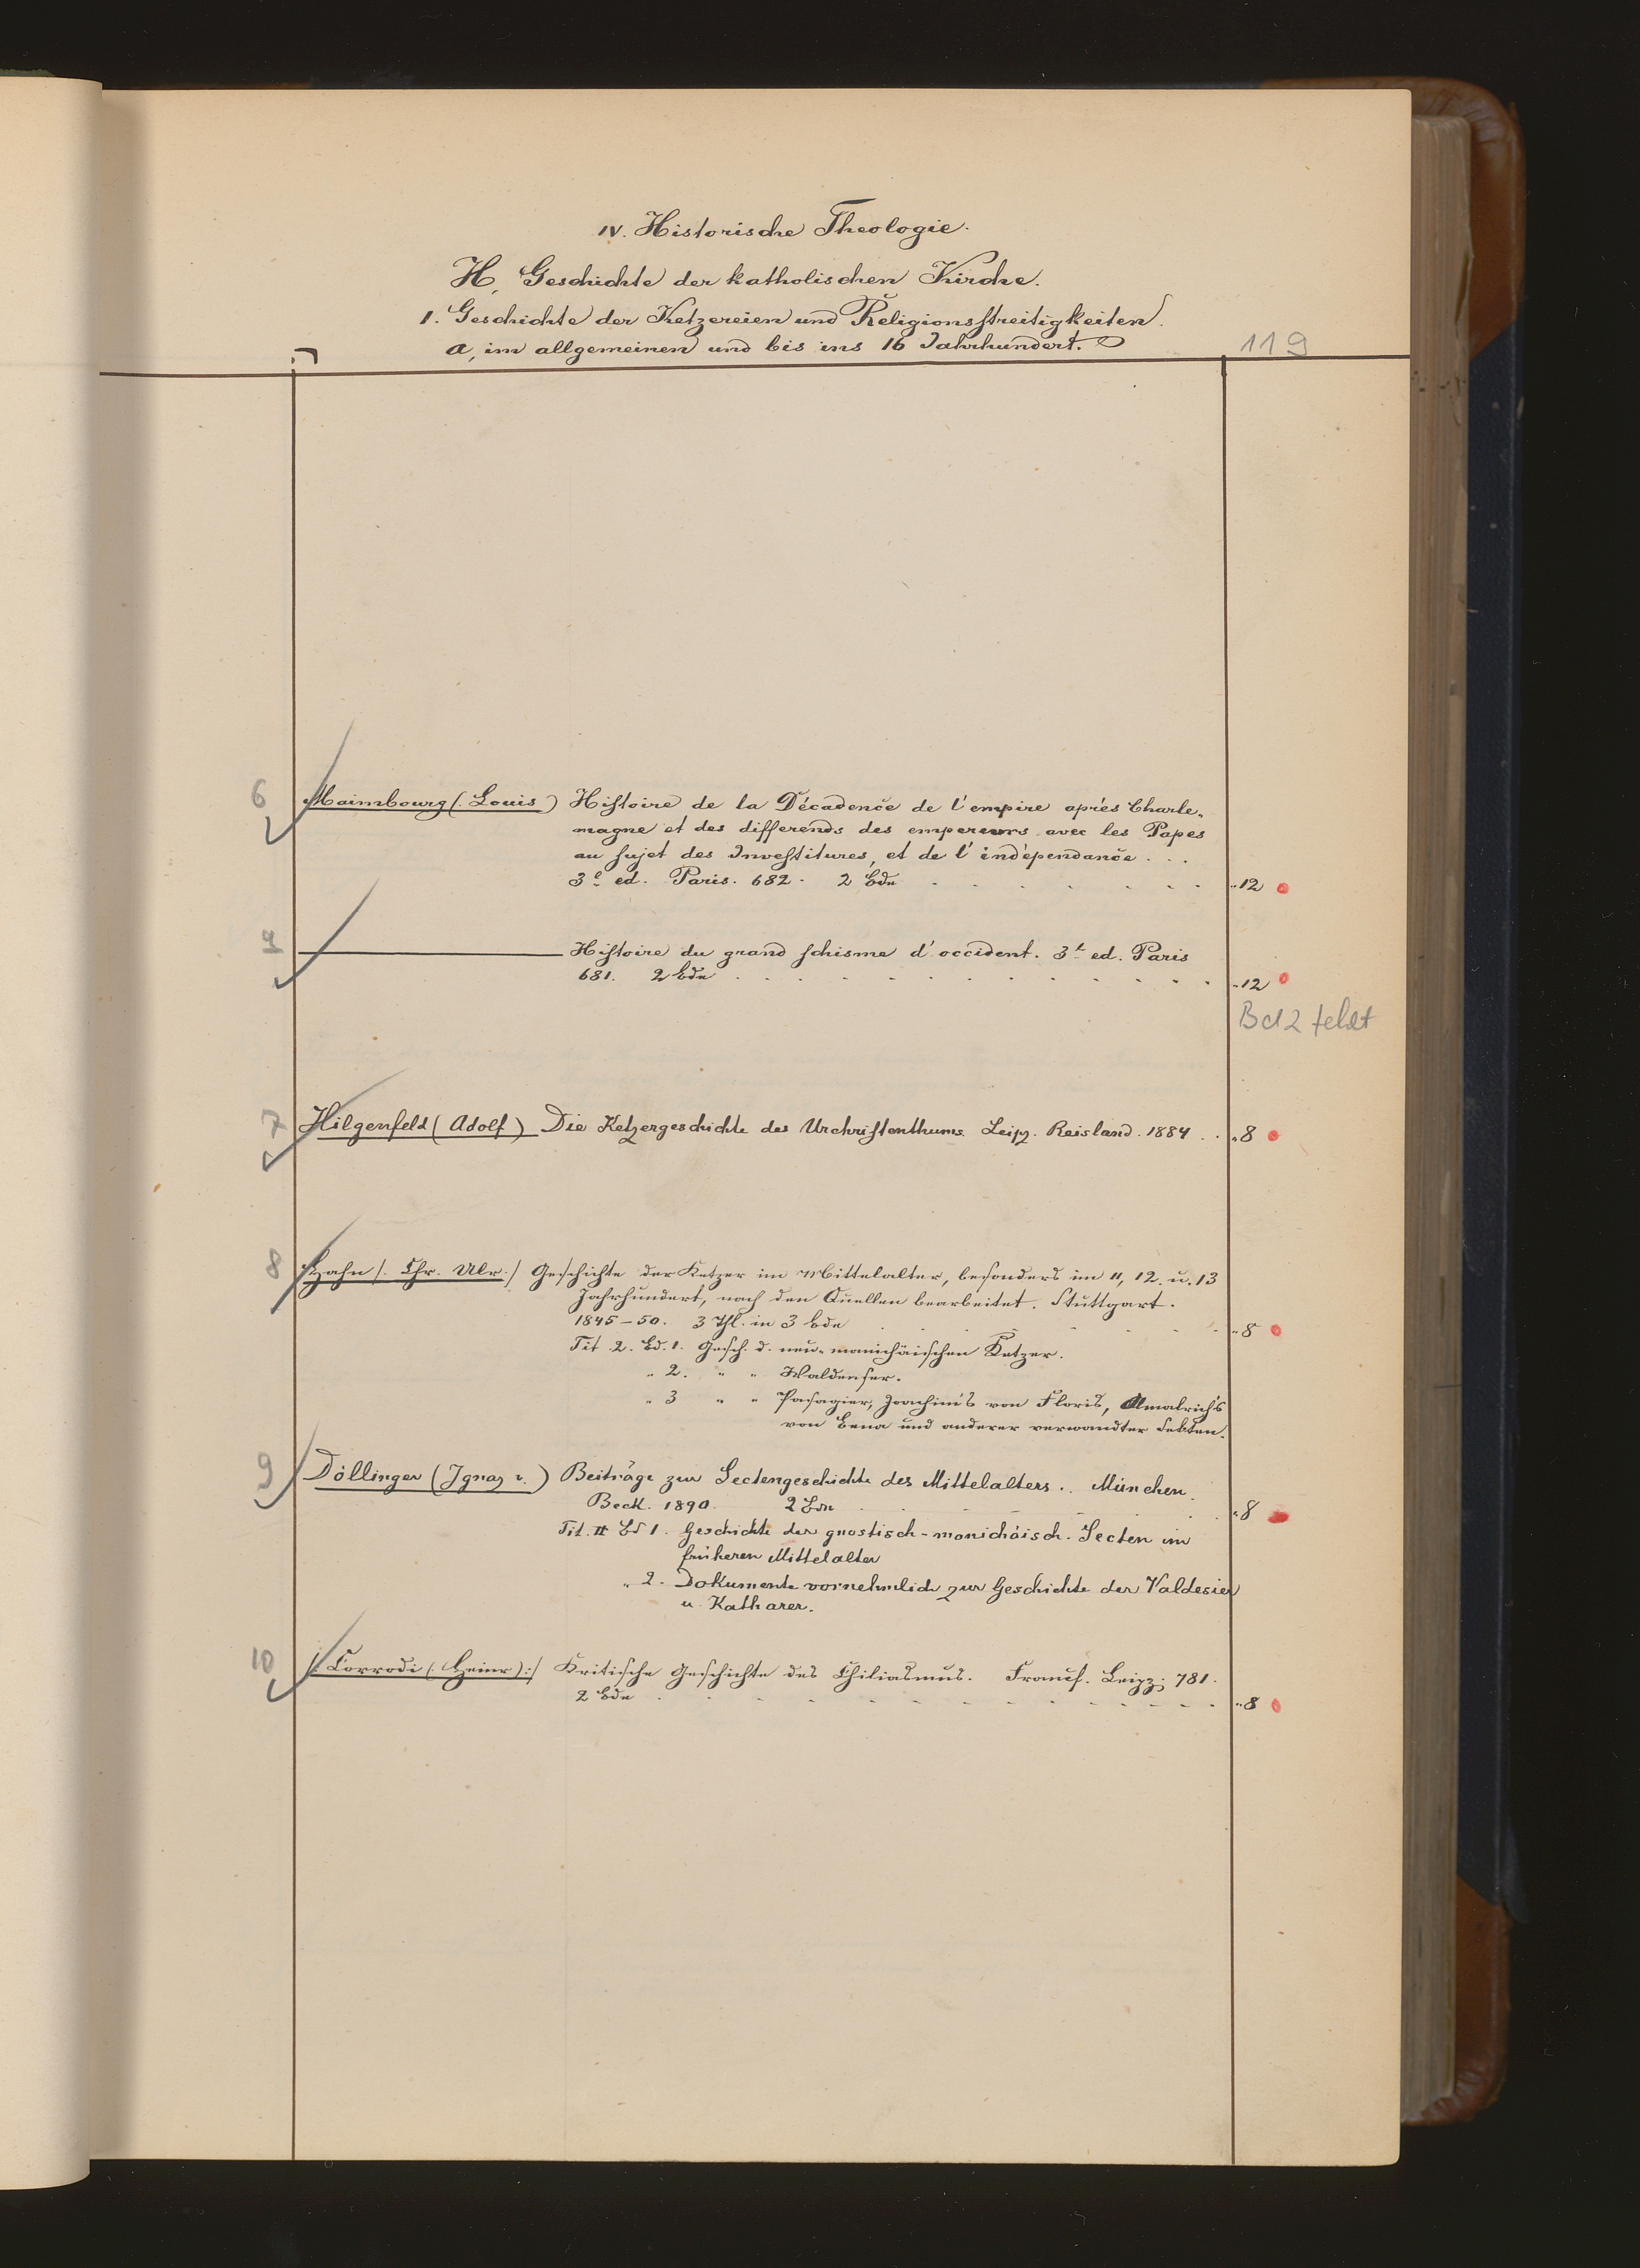 IV. Historische Theologie.
H, Geschichte der katholischen Kirche.
1. Geschichte der Ketzereien und Religionsstreitigkeiten.
a, im allgemeinen und bis ins 16 Jahrhundert.
119
6 Maimbourg (. Louis) Histoire de la Décadence de l'empire après Charle-
magne et des differends des empereurs avec les Papes
au sujet des Investitures, et de l'indépendance . . .
3e ed. Paris. 682. 2 Bde . . . . . . . "12
Histoire du grand schisme d'occident. 3e ed. Paris
681. 2 Bde . . . . . . . . . . . "12
Bd 2 fehlt
7 Hilgenfeld (Adolf) Die Ketzergeschichte des Urchristenthums. Leipz. Reisland. 1884 . . "8
8 Hahn /. Chr. Ulr. / Geschichte der Ketzer im Mittelalter, besonders im 11, 12. u. 13
Jahrhundert, nach den Quellen bearbeitet. Stuttgart.
1845-50. 3 Thl. in 3 Bde . . . . . . "8
Tit. 2. Bd. 1. Gesch. d. neu-manichäischen Ketzer.
" 2. " " Waldenser.
" 3 " " Pasagier, Joachim's von Floris, Almalrich's
von Bena und anderer verwandter Sekten.
9 Döllinger (Ignaz v.) Beiträge zur Sectengeschichte des Mittelalters. . München.
Beck. 1890. 2 Bde . . . . . "8
Tit. II Bd 1. Geschichte der gnostisch-manichäisch. Secten im
früheren Mittelalter
" 2. Dokumente vornehmlich zur Geschichte der Valdesier
u. Katharer.
10 /: Corrodi (. Heinr):/ Kritische Geschichte des Chiliasmus. Franuf. Leipz; 781.
2 Bde . . . . . . . . . . . . "8